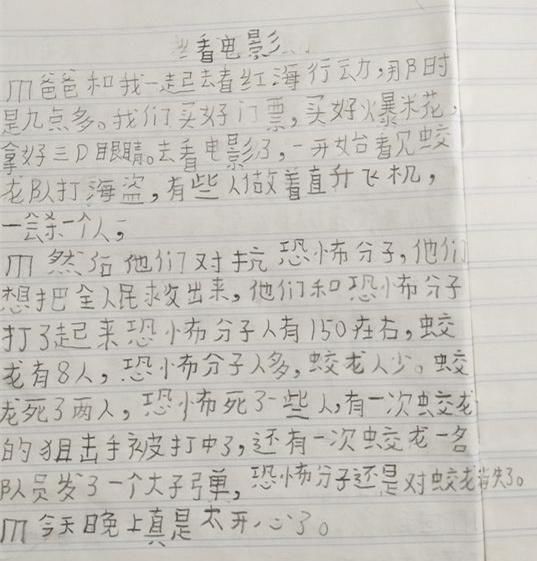 看电影
爸爸和我一起去看红海行动,那时
是九点多。我们买好门票,买好火暴米花,
拿好三D眼睛。去看电影了,一开始看见蛟
龙队打海盗,有些人做着直升飞机,
一会杀一个人,
然后他们对抗恐怖分子,他们
想把全人民救出来,他们和恐怖分子
打了起来恐怖分子人有150在右,蛟
龙有8人,恐怖分子人多,蛟龙人少。蛟
龙死了两人,恐怖死了一些人,有一次蛟龙
的狙击手被打中了,还有一次蛟龙一名
队员发了一个大子弹,恐怖分子还是对蛟龙消失了。
今天晚上真是太开心了。